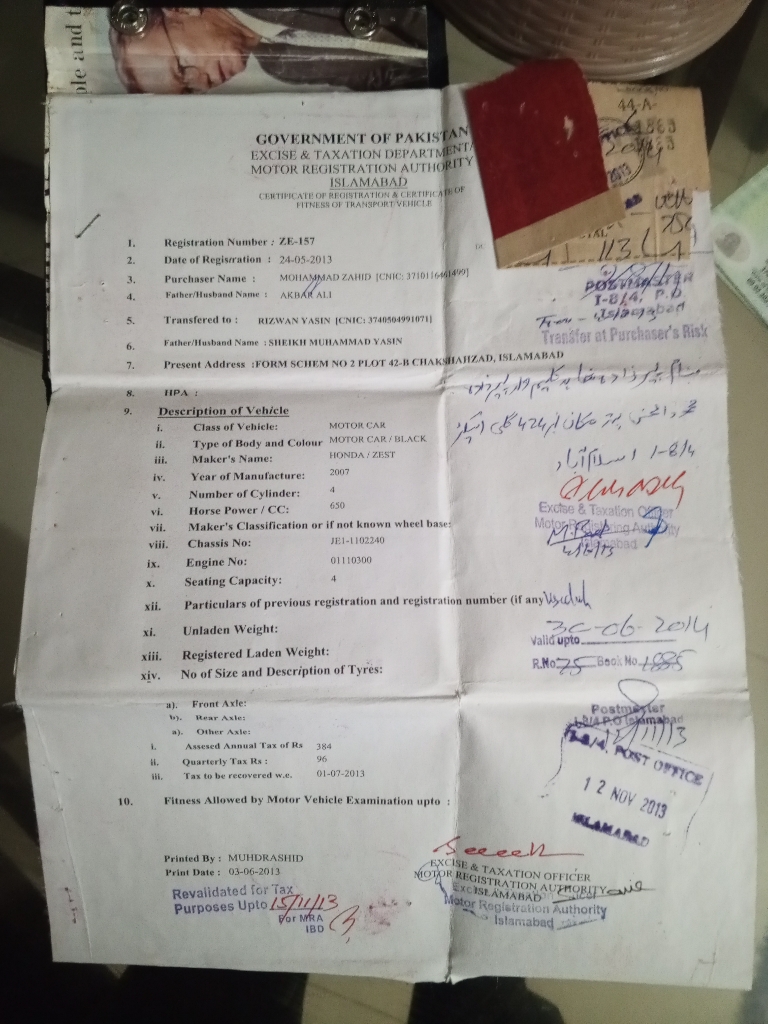 ple and t
GOVERNMENT OF PAKISTAN
EXCISE & TAXATION DEPARTMENT
MOTOR REGISTRATION AUTHORITY
ISLAMABAD
CERTIFICATE OF REGISTRATION & CERTIFICATE OF
FITNESS OF TRANSPORT VEHICLE
44-A-
2013
113
1. Registration Number : ZE-157
2. Date of Registration : 24-05-2013
3. Purchaser Name : MOHAMMAD ZAHID [CNIC: 3710116461499]
4. Father/Husband Name : AKBAR ALI
POSTMASTER
I-8/4, P.O
Islamabad
Transfer at Purchaser's Risk
5. Transfered to : RIZWAN YASIN [CNIC: 3740504991071]
6. Father/Husband Name : SHEIKH MUHAMMAD YASIN
7. Present Address :FORM SCHEM NO 2 PLOT 42-B CHAKSHAHZAD, ISLAMABAD
8. HPA :
9. Description of Vehicle
i. Class of Vehicle: MOTOR CAR
ii. Type of Body and Colour MOTOR CAR / BLACK
iii. Maker's Name: HONDA / ZEST
iv. Year of Manufacture: 2007
v. Number of Cylinder: 4
vi. Horse Power / CC: 650
vii. Maker's Classification or if not known wheel base:
viii. Chassis No: JE1-1102240
ix. Engine No: 01110300
x. Seating Capacity: 4
1-8/4 اسلام آباد
Excise & Taxation Officer
Motor Registering Authority
Islamabad
xii. Particulars of previous registration and registration number (if any
xi. Unladen Weight:
xiii. Registered Laden Weight:
xiv. No of Size and Description of Tyres:
30-06-2014
Valid upto
R.No 75 Book No 1885
a). Front Axle:
b). Rear Axle:
a). Other Axle:
i. Assesed Annual Tax of Rs 384
ii. Quarterly Tax Rs : 96
iii. Tax to be recovered w.e. 01-07-2013
Postmaster
I-8/4 P.O Islamabad
12/11/13
I-8/4, POST OFFICE
12 NOV 2013
ISLAMABAD
10. Fitness Allowed by Motor Vehicle Examination upto :
Printed By : MUHDRASHID
Print Date : 03-06-2013
Revalidated for Tax
Purposes Upto 15/11/13
For MRA
IBD
EXCISE & TAXATION OFFICER
MOTOR REGISTRATION AUTHORITY
ISLAMABAD
Motor Registration Authority
Islamabad